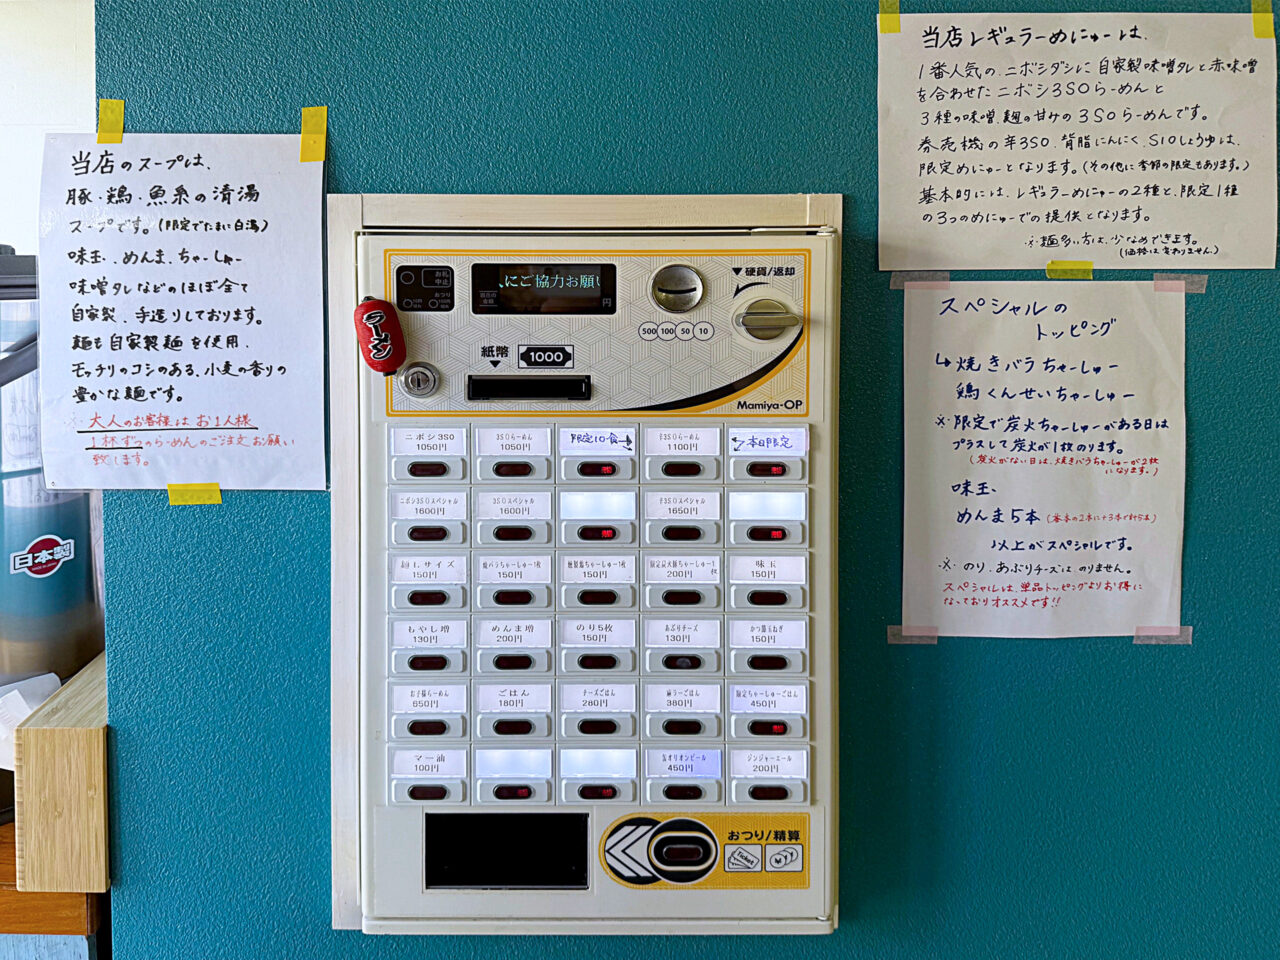 当店のスープは、
豚・鶏・魚系の清湯
スープです。(限定でたまに白湯)
味玉、めんま、ちゃーしゅー
味噌タレなどのほぼ全て
自家製、手造りしております。
麺も自家製麺を使用、
モッチリのコシのある、小麦の香りの
豊かな麺です。
※大人のお客様はお1人様
1杯ずつのらーめんのご注文お願い
致します。
日本製
ラーメン
お札
中止
おつり
にご協力お願い
円
▼硬貨/返却
500 100 50 10
紙幣
▼
1000
Mamiya-OP
ニボシ3SO
1050円
3SOらーめん
1050円
限定10食→
辛3SOらーめん
1100円
本日限定
ニボシ3SOスペシャル
1600円
3SOスペシャル
1600円
辛3SOスペシャル
1650円
麺Lサイズ
150円
焼バラちゃーしゅー1枚
150円
燻製鶏ちゃーしゅー1枚
150円
限定炭火豚ちゃーしゅー1枚
200円
味玉
150円
もやし増
130円
めんま増
200円
のり5枚
150円
あぶりチーズ
130円
150円
お子様らーめん
650円
ごはん
180円
チーズごはん
280円
麻ラーごはん
380円
限定ちゃーしゅーごはん
450円
マー油
100円
缶オリオンビール
450円
ジンジャーエール
200円
おつり/精算
Ticket
当店レギュラーめにゅーは、
1番人気の、ニボシダシに自家製味噌タレと赤味噌
を合わせたニボシ3SOらーめんと
3種の味噌、麹の甘みの3SOらーめんです。
券売機の辛3SO、背脂にんにく、S10しょうゆは、
限定めにゅーとなります。(その他に季節の限定もあります。)
基本的には、レギュラーめにゅーの2種と、限定1種
の3つのめにゅーでの提供となります。
※麺多い方は、少なめできます。
(価格は変わりません。)
スペシャルの
トッピング
↳焼きバラちゃーしゅー
鶏くんせいちゃーしゅー
※限定で炭火ちゃーしゅーがある日は
プラスして炭火が1枚のります。
(炭火がない日は、焼きバラちゃーしゅーが2枚
になります。)
味玉、
めんま5本(基本の2本に+3本で計5本)
以上がスペシャルです。
※のり、あぶりチーズは、のりません。
スペシャルは、単品トッピングよりお得に
なっておりオススメです!!